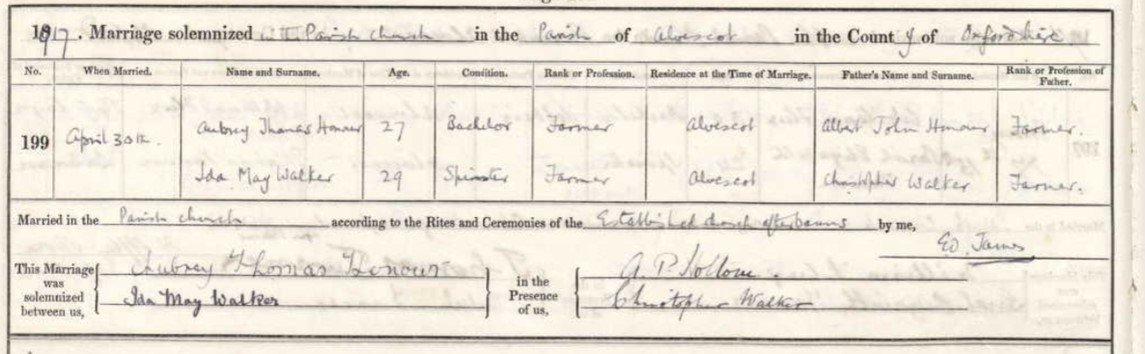 1917. Marriage solemnized in the Parish church in the Parish of Alvescot in the County of Oxfordshire
No. When Married. Name and Surname. Age. Condition. Rank or Profession. Residence at the Time of Marriage. Father's Name and Surname. Rank or Profession of Father.
199 April 30th. Aubrey Thomas Honour 27 Bachelor Farmer Alvescot Albert John Honour Farmer.
Ida May Walker 29 Spinster Farmer Alvescot Christopher Walker Farmer.
Married in the Parish church according to the Rites and Ceremonies of the Established church after banns by me,
James
This Marriage was solemnized between us, Aubrey Thomas Honour in the Presence of us, A. P.
Ida May Walker Christopher Walker